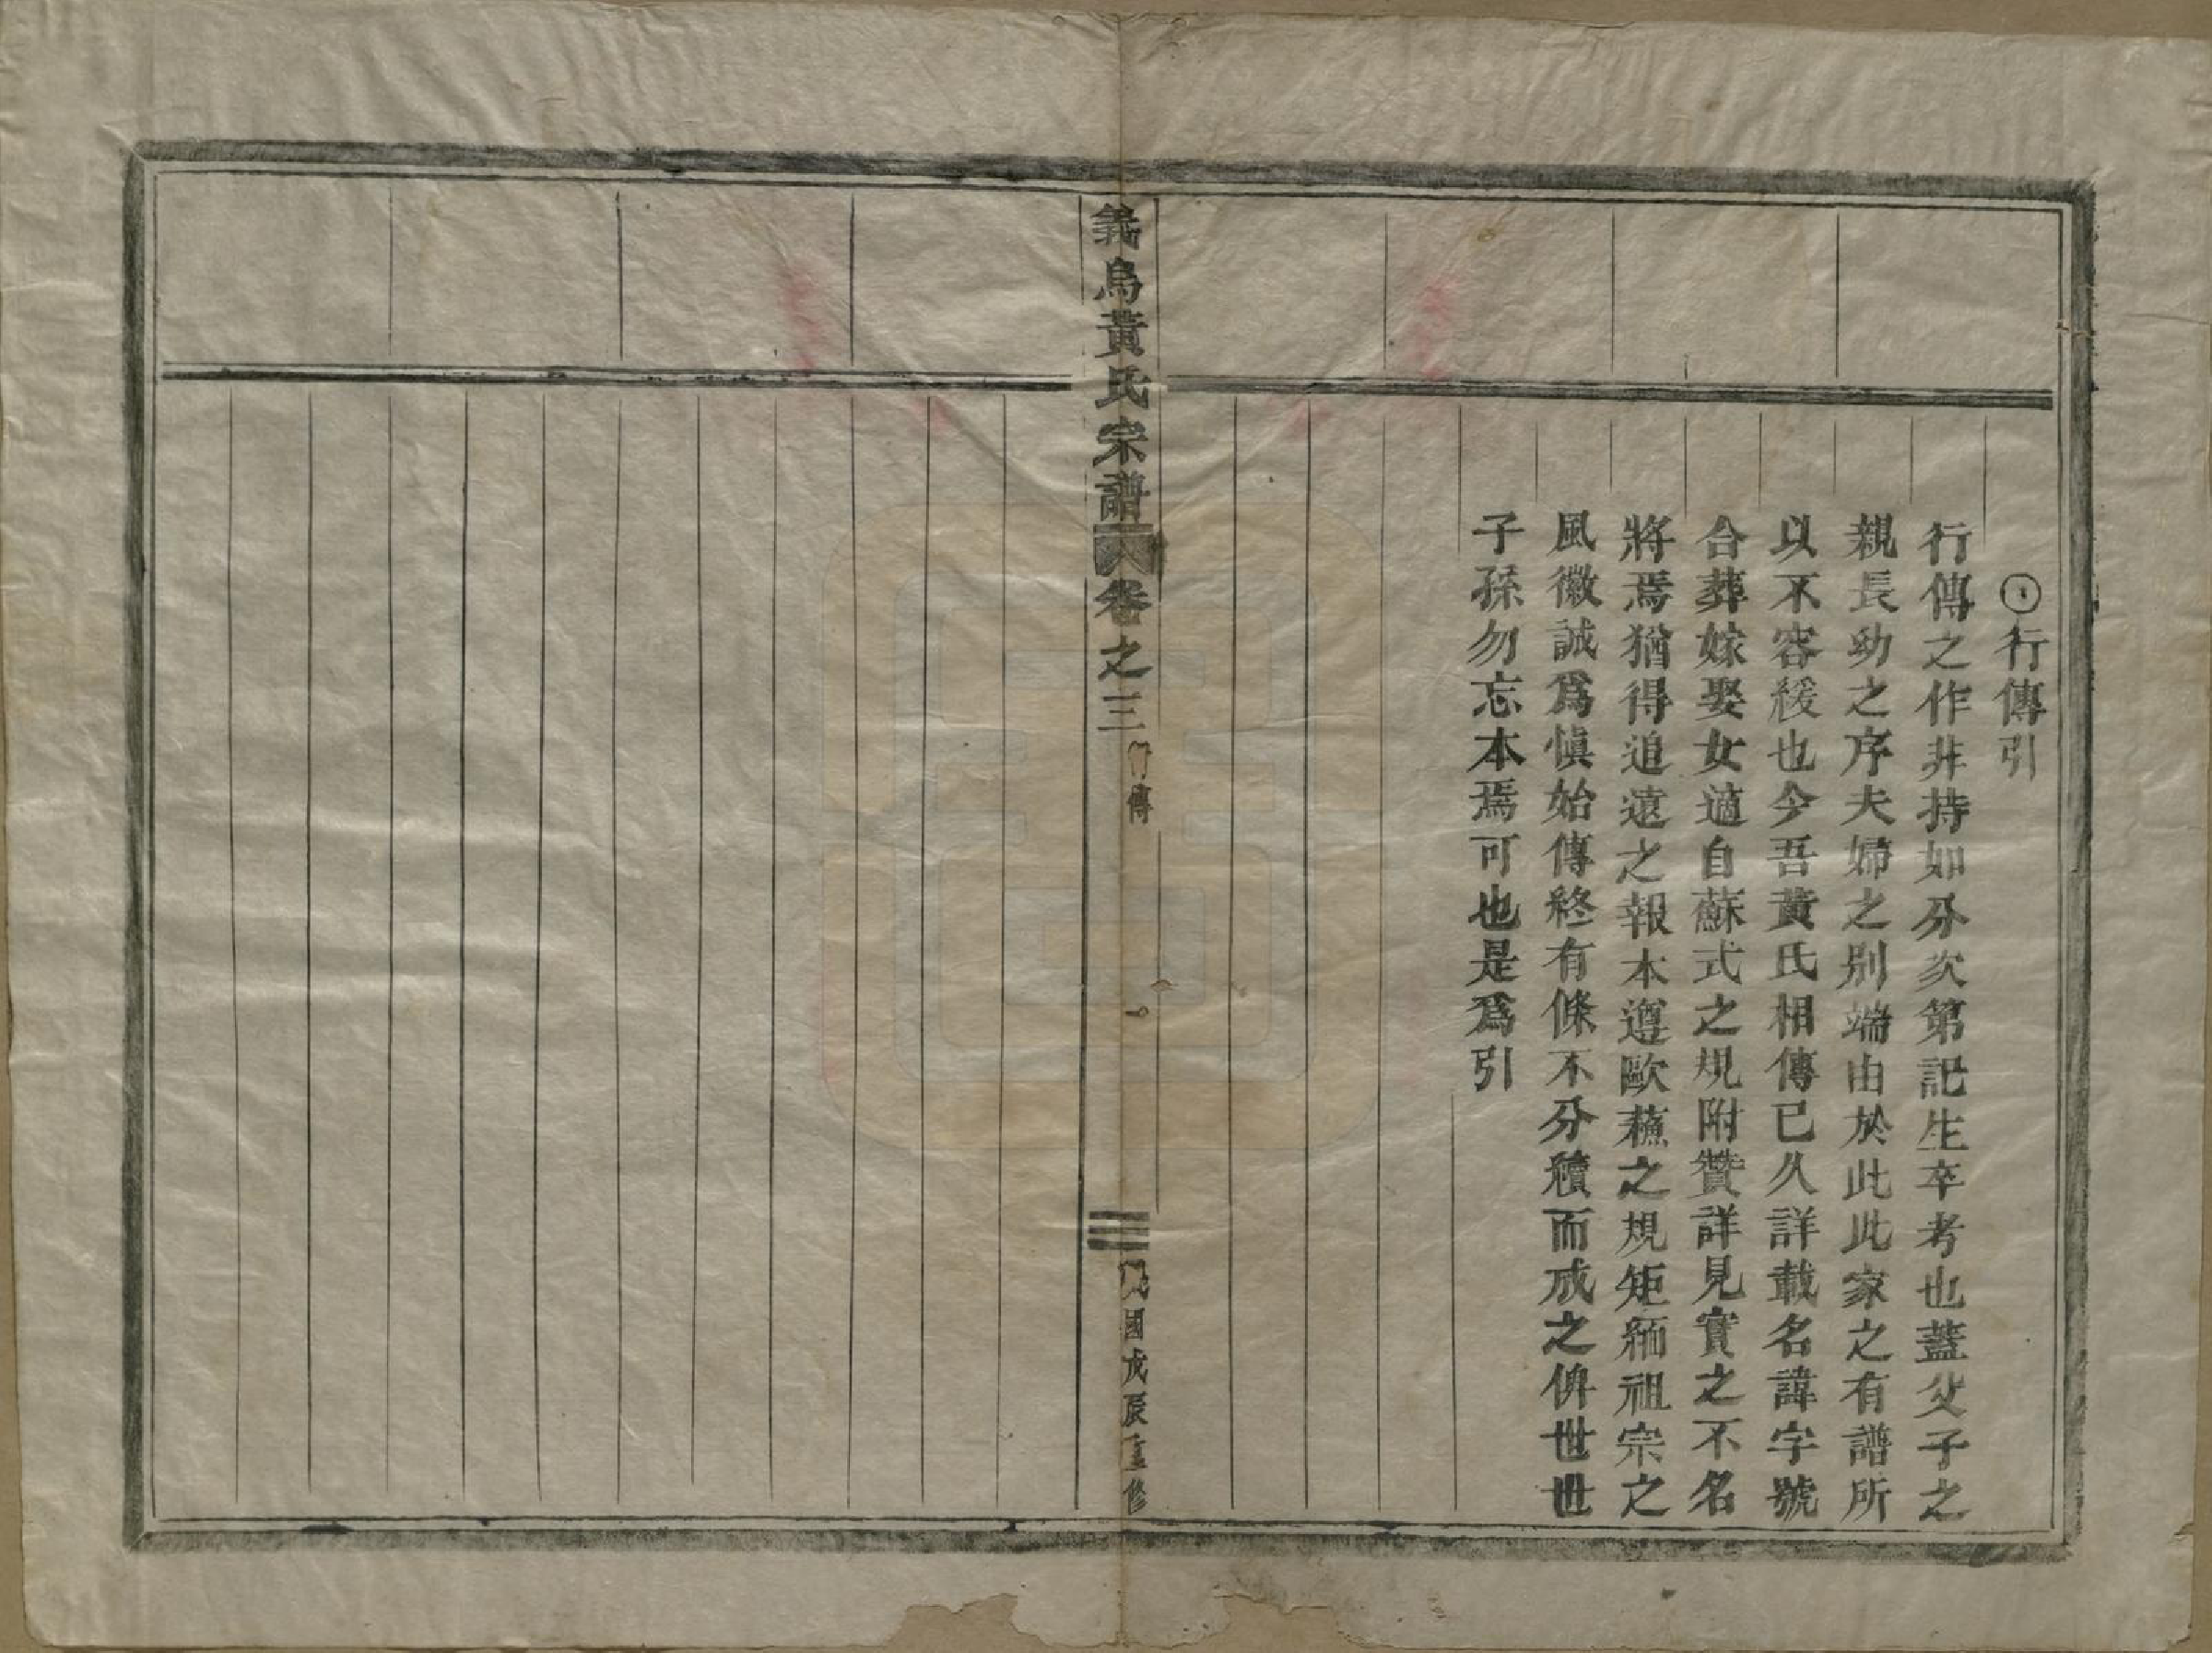 行傳引
行傳之作非持如分次第記生卒考也蓋父子之
親長幼之序夫婦之别端由於此此家之有譜所
以不容緩也今吾黃氏相傳已久詳載名諱字號
合葬嫁娶女適自蘇式之規附贊詳見實之不名
將焉猶得追遠之報本遵歐蘓之規矩緬祖宗之
風徽誠爲愼始傳終有條不分積而成之俾世世
子孫勿忘本焉可也是爲引
義烏黃氏宗譜 卷之三 行傳 一 民國戊辰重修